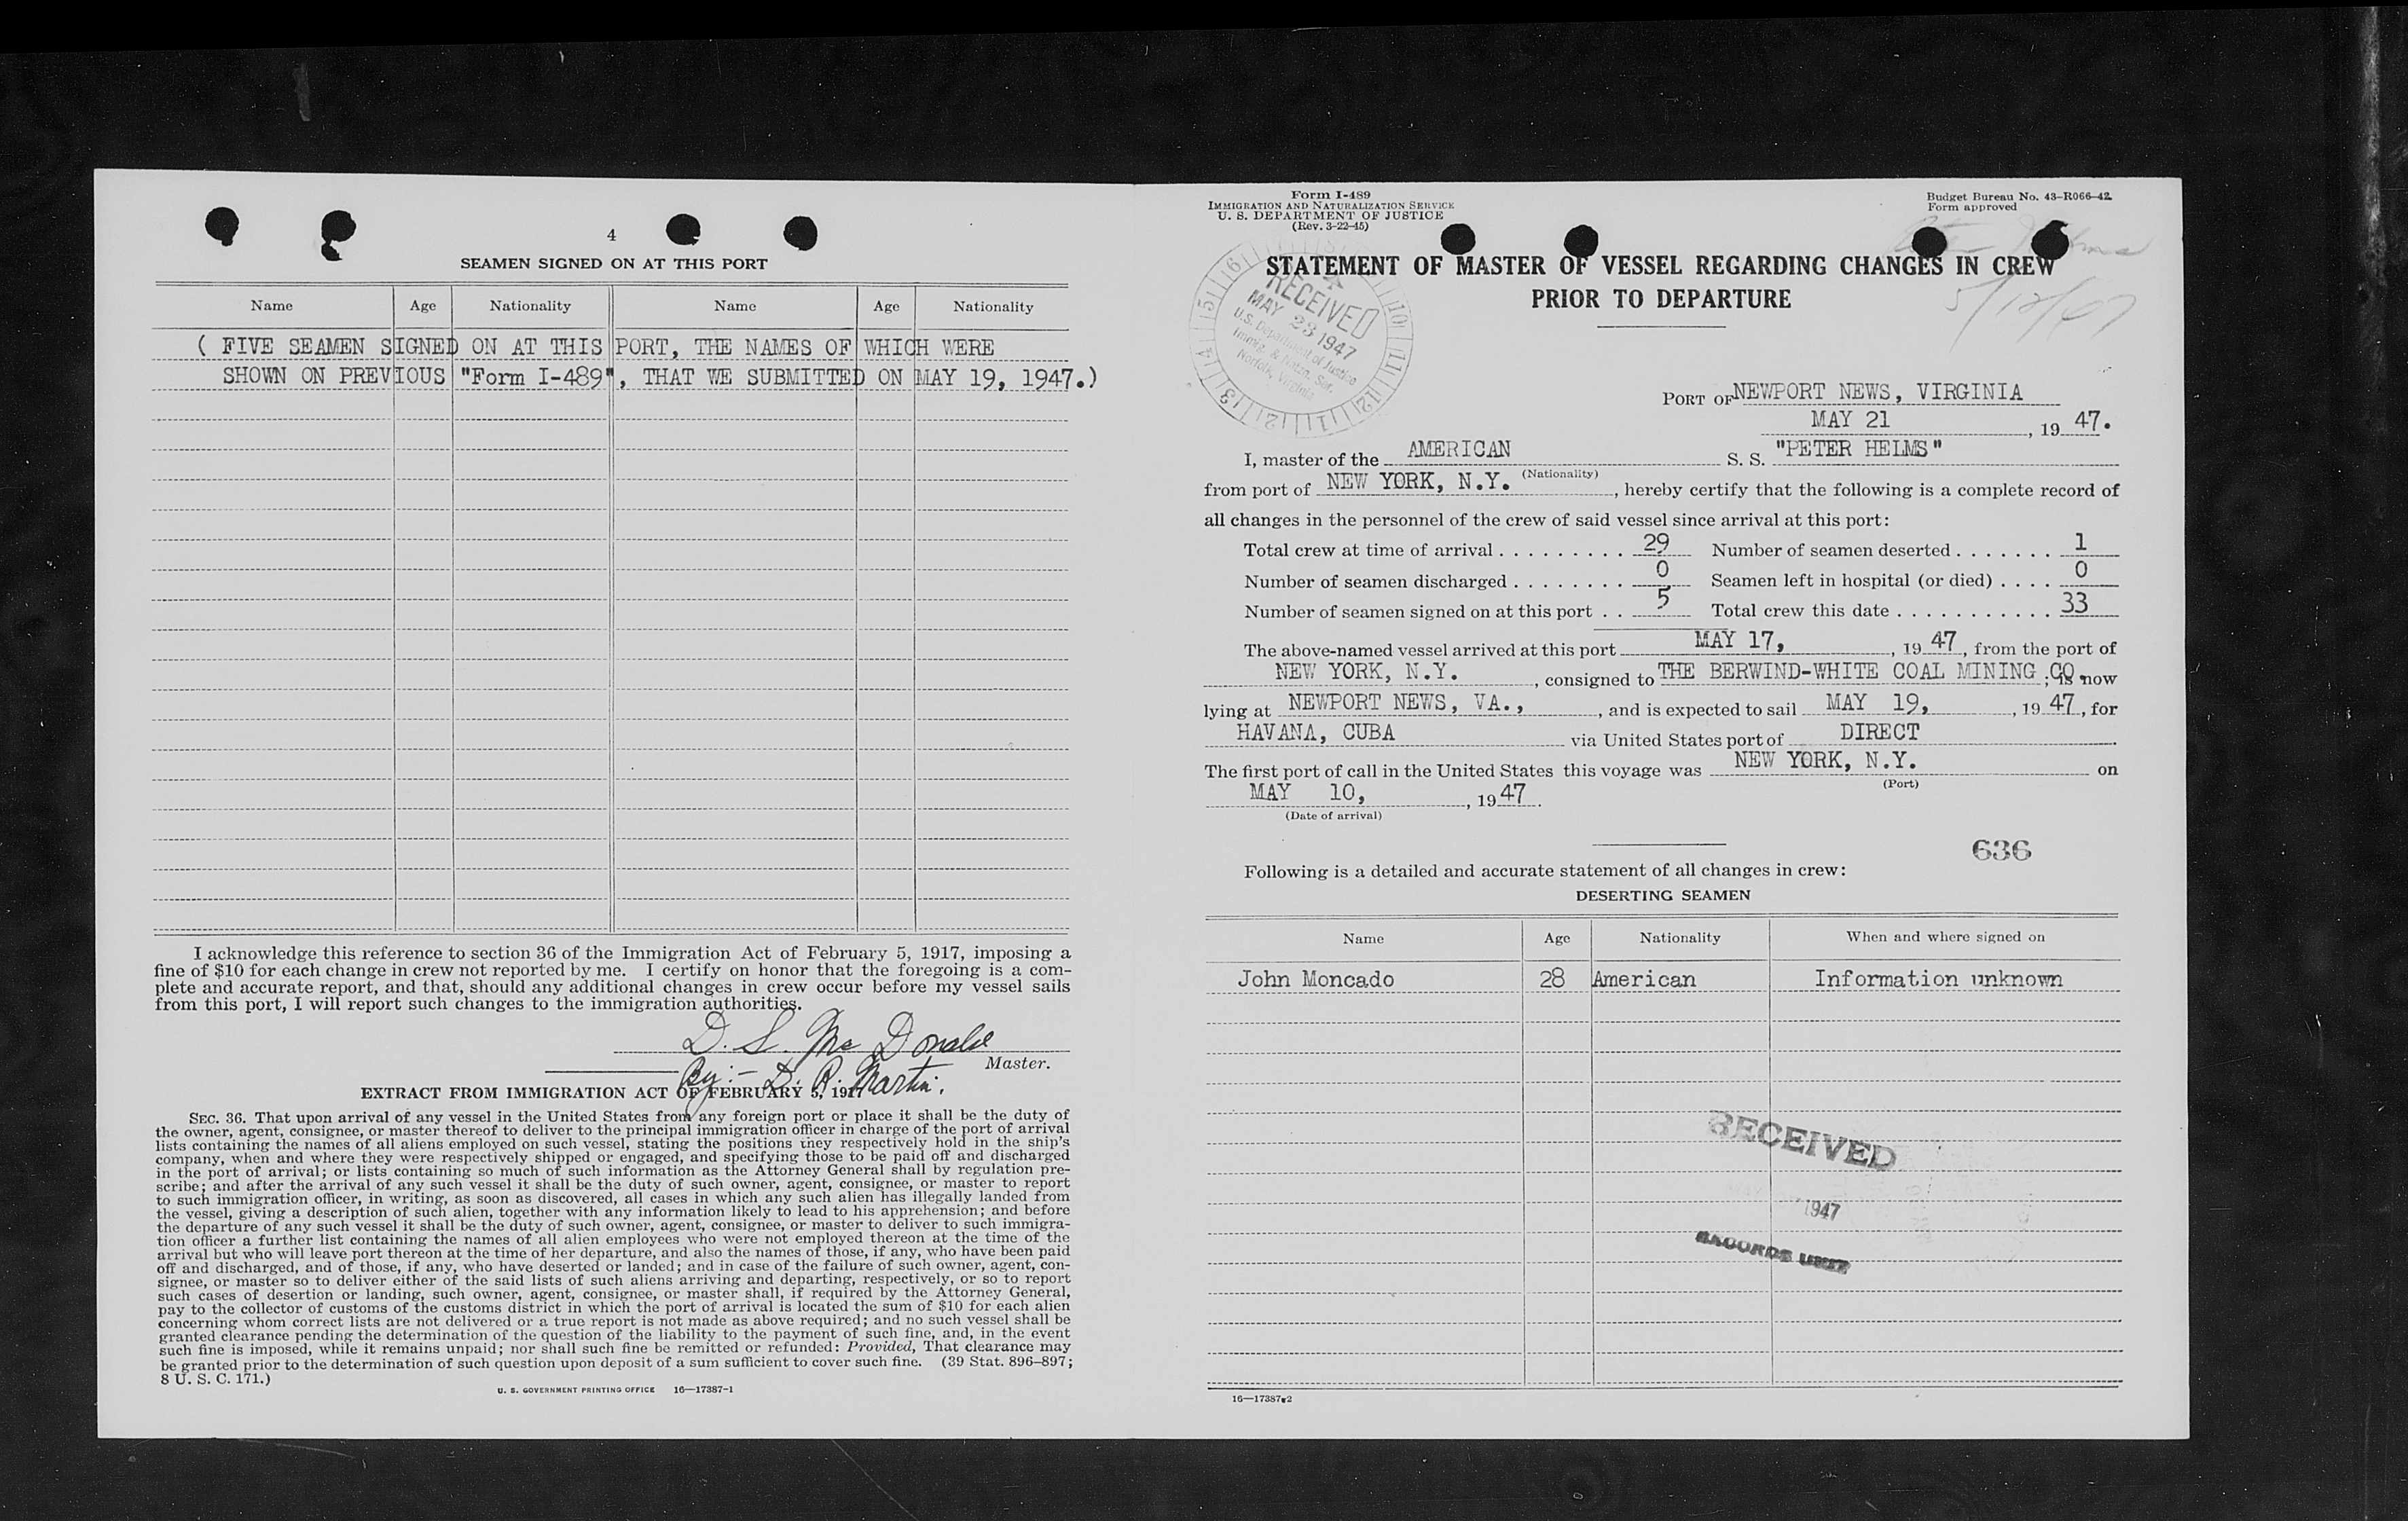 4
SEAMEN SIGNED ON AT THIS PORT
Name Age Nationality Name Age Nationality
( FIVE SEAMEN SIGNED ON AT THIS PORT, THE NAMES OF WHICH WERE
SHOWN ON PREVIOUS "Form I-489", THAT WE SUBMITTED ON MAY 19, 1947.)
I acknowledge this reference to section 36 of the Immigration Act of February 5, 1917, imposing a
fine of $10 for each change in crew not reported by me. I certify on honor that the foregoing is a com-
plete and accurate report, and that, should any additional changes in crew occur before my vessel sails
from this port, I will report such changes to the immigration authorities.
D. S. Mc Donald
Master.
By:- D. R. Martin.
EXTRACT FROM IMMIGRATION ACT OF FEBRUARY 5, 1917
SEC. 36. That upon arrival of any vessel in the United States from any foreign port or place it shall be the duty of
the owner, agent, consignee, or master thereof to deliver to the principal immigration officer in charge of the port of arrival
lists containing the names of all aliens employed on such vessel, stating the positions they respectively hold in the ship's
company, when and where they were respectively shipped or engaged, and specifying those to be paid off and discharged
in the port of arrival; or lists containing so much of such information as the Attorney General shall by regulation pre-
scribe; and after the arrival of any such vessel it shall be the duty of such owner, agent, consignee, or master to report
to such immigration officer, in writing, as soon as discovered, all cases in which any such alien has illegally landed from
the vessel, giving a description of such alien, together with any information likely to lead to his apprehension; and before
the departure of any such vessel it shall be the duty of such owner, agent, consignee, or master to deliver to such immigra-
tion officer a further list containing the names of all alien employees who were not employed thereon at the time of the
arrival but who will leave port thereon at the time of her departure, and also the names of those, if any, who have been paid
off and discharged, and of those, if any, who have deserted or landed; and in case of the failure of such owner, agent, con-
signee, or master so to deliver either of the said lists of such aliens arriving and departing, respectively, or so to report
such cases of desertion or landing, such owner, agent, consignee, or master shall, if required by the Attorney General,
pay to the collector of customs of the customs district in which the port of arrival is located the sum of $10 for each alien
concerning whom correct lists are not delivered or a true report is not made as above required; and no such vessel shall be
granted clearance pending the determination of the question of the liability to the payment of such fine, and, in the event
such fine is imposed, while it remains unpaid; nor shall such fine be remitted or refunded: Provided, That clearance may
be granted prior to the determination of such question upon deposit of a sum sufficient to cover such fine. (39 Stat. 896–897;
8 U. S. C. 171.)
U. S. GOVERNMENT PRINTING OFFICE 16—17387-1
Form I-489
IMMIGRATION AND NATURALIZATION SERVICE
U. S. DEPARTMENT OF JUSTICE
(Rev. 3-22-45)
Budget Bureau No. 43-R066-42
Form approved
STATEMENT OF MASTER OF VESSEL REGARDING CHANGES IN CREW
PRIOR TO DEPARTURE
RECEIVED
MAY 23 1947
U.S. Department of Justice
Immig. & Natzn. Ser.
Norfolk, Virginia
PORT OF NEWPORT NEWS, VIRGINIA
MAY 21, 19 47.
I, master of the AMERICAN S. S. "PETER HELMS"
(Nationality)
from port of NEW YORK, N.Y., hereby certify that the following is a complete record of
all changes in the personnel of the crew of said vessel since arrival at this port:
Total crew at time of arrival . . . . . . . . . 29 Number of seamen deserted . . . . . . . 1
Number of seamen discharged . . . . . . . . 0 Seamen left in hospital (or died) . . . . 0
Number of seamen signed on at this port . . 5 Total crew this date . . . . . . . . . . . 33
The above-named vessel arrived at this port MAY 17, , 19 47, from the port of
NEW YORK, N.Y. , consigned to THE BERWIND-WHITE COAL MINING CO. ; is now
lying at NEWPORT NEWS, VA., , and is expected to sail MAY 19, , 19 47, for
HAVANA, CUBA via United States port of DIRECT
The first port of call in the United States this voyage was NEW YORK, N.Y. on
(Port)
MAY 10, , 19 47.
(Date of arrival)
636
Following is a detailed and accurate statement of all changes in crew:
DESERTING SEAMEN
Name Age Nationality When and where signed on
John Moncado 28 American Information unknown
RECEIVED
1947
RECORDS UNIT
16—17387-2